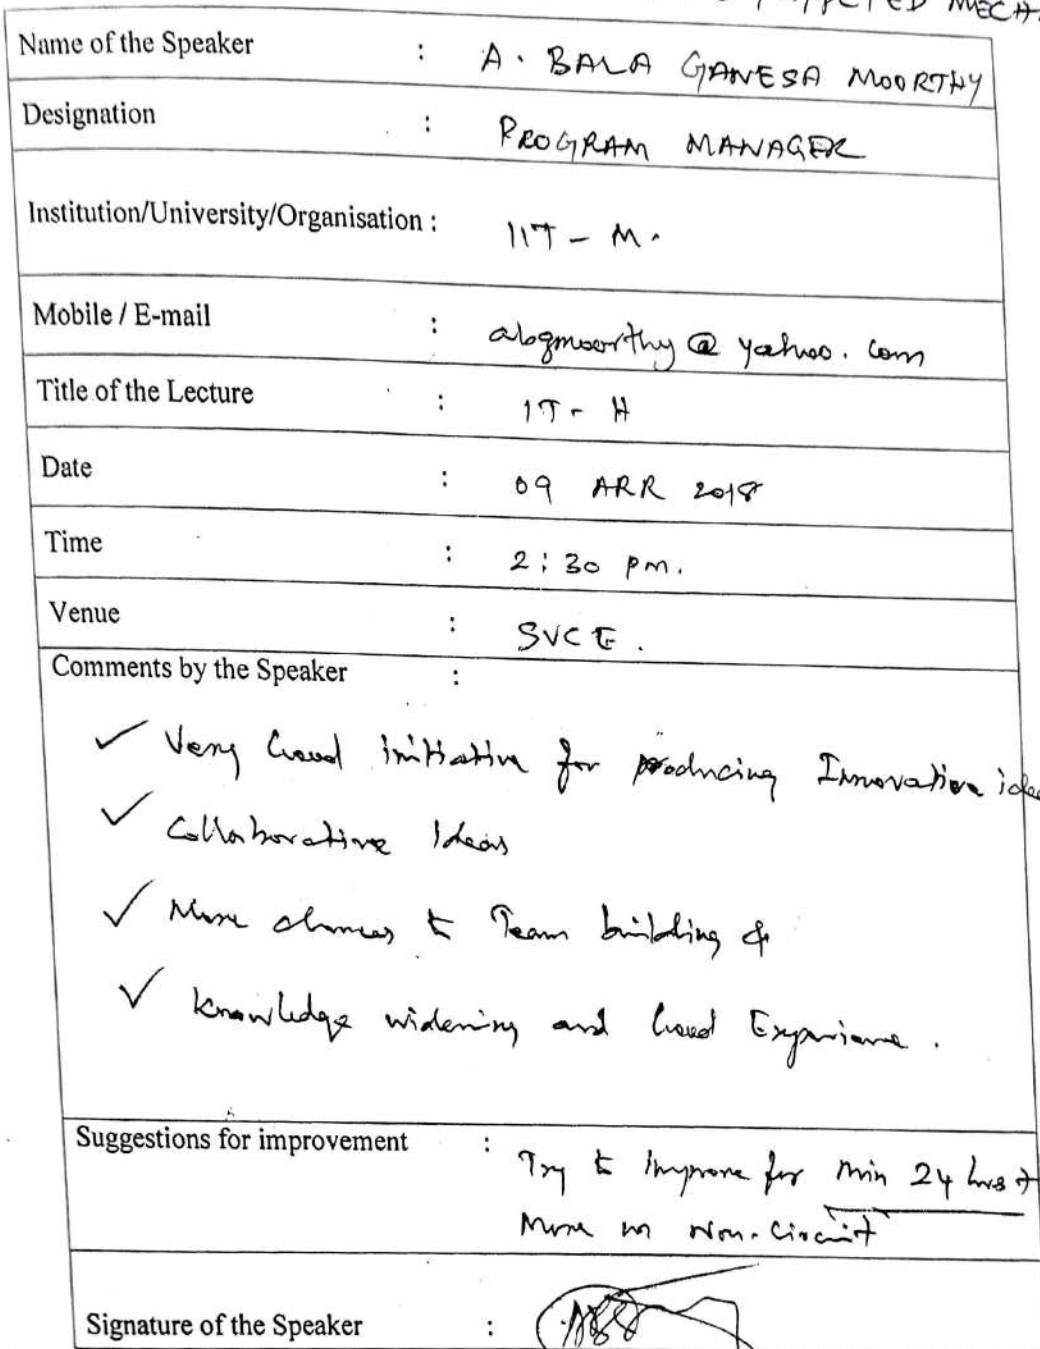 MECH
Name of the Speaker : A. BALA GANESA MOORTHY
Designation : PROGRAM MANAGER
Institution/University/Organisation : IIT - M.
Mobile / E-mail : abgmoorthy @ yahoo. com
Title of the Lecture : IT - H
Date : 09 APR 2018
Time : 2:30 pm.
Venue : SVCE.
Comments by the Speaker :
✓ Very Good initiative for producing Innovative idea
✓ Collaborative Ideas
✓ More chances to Team building &
✓ Knowledge widening and Good Experience.
Suggestions for improvement : Try to Improve for min 24 hrs +
More in Non-Circuit
Signature of the Speaker :